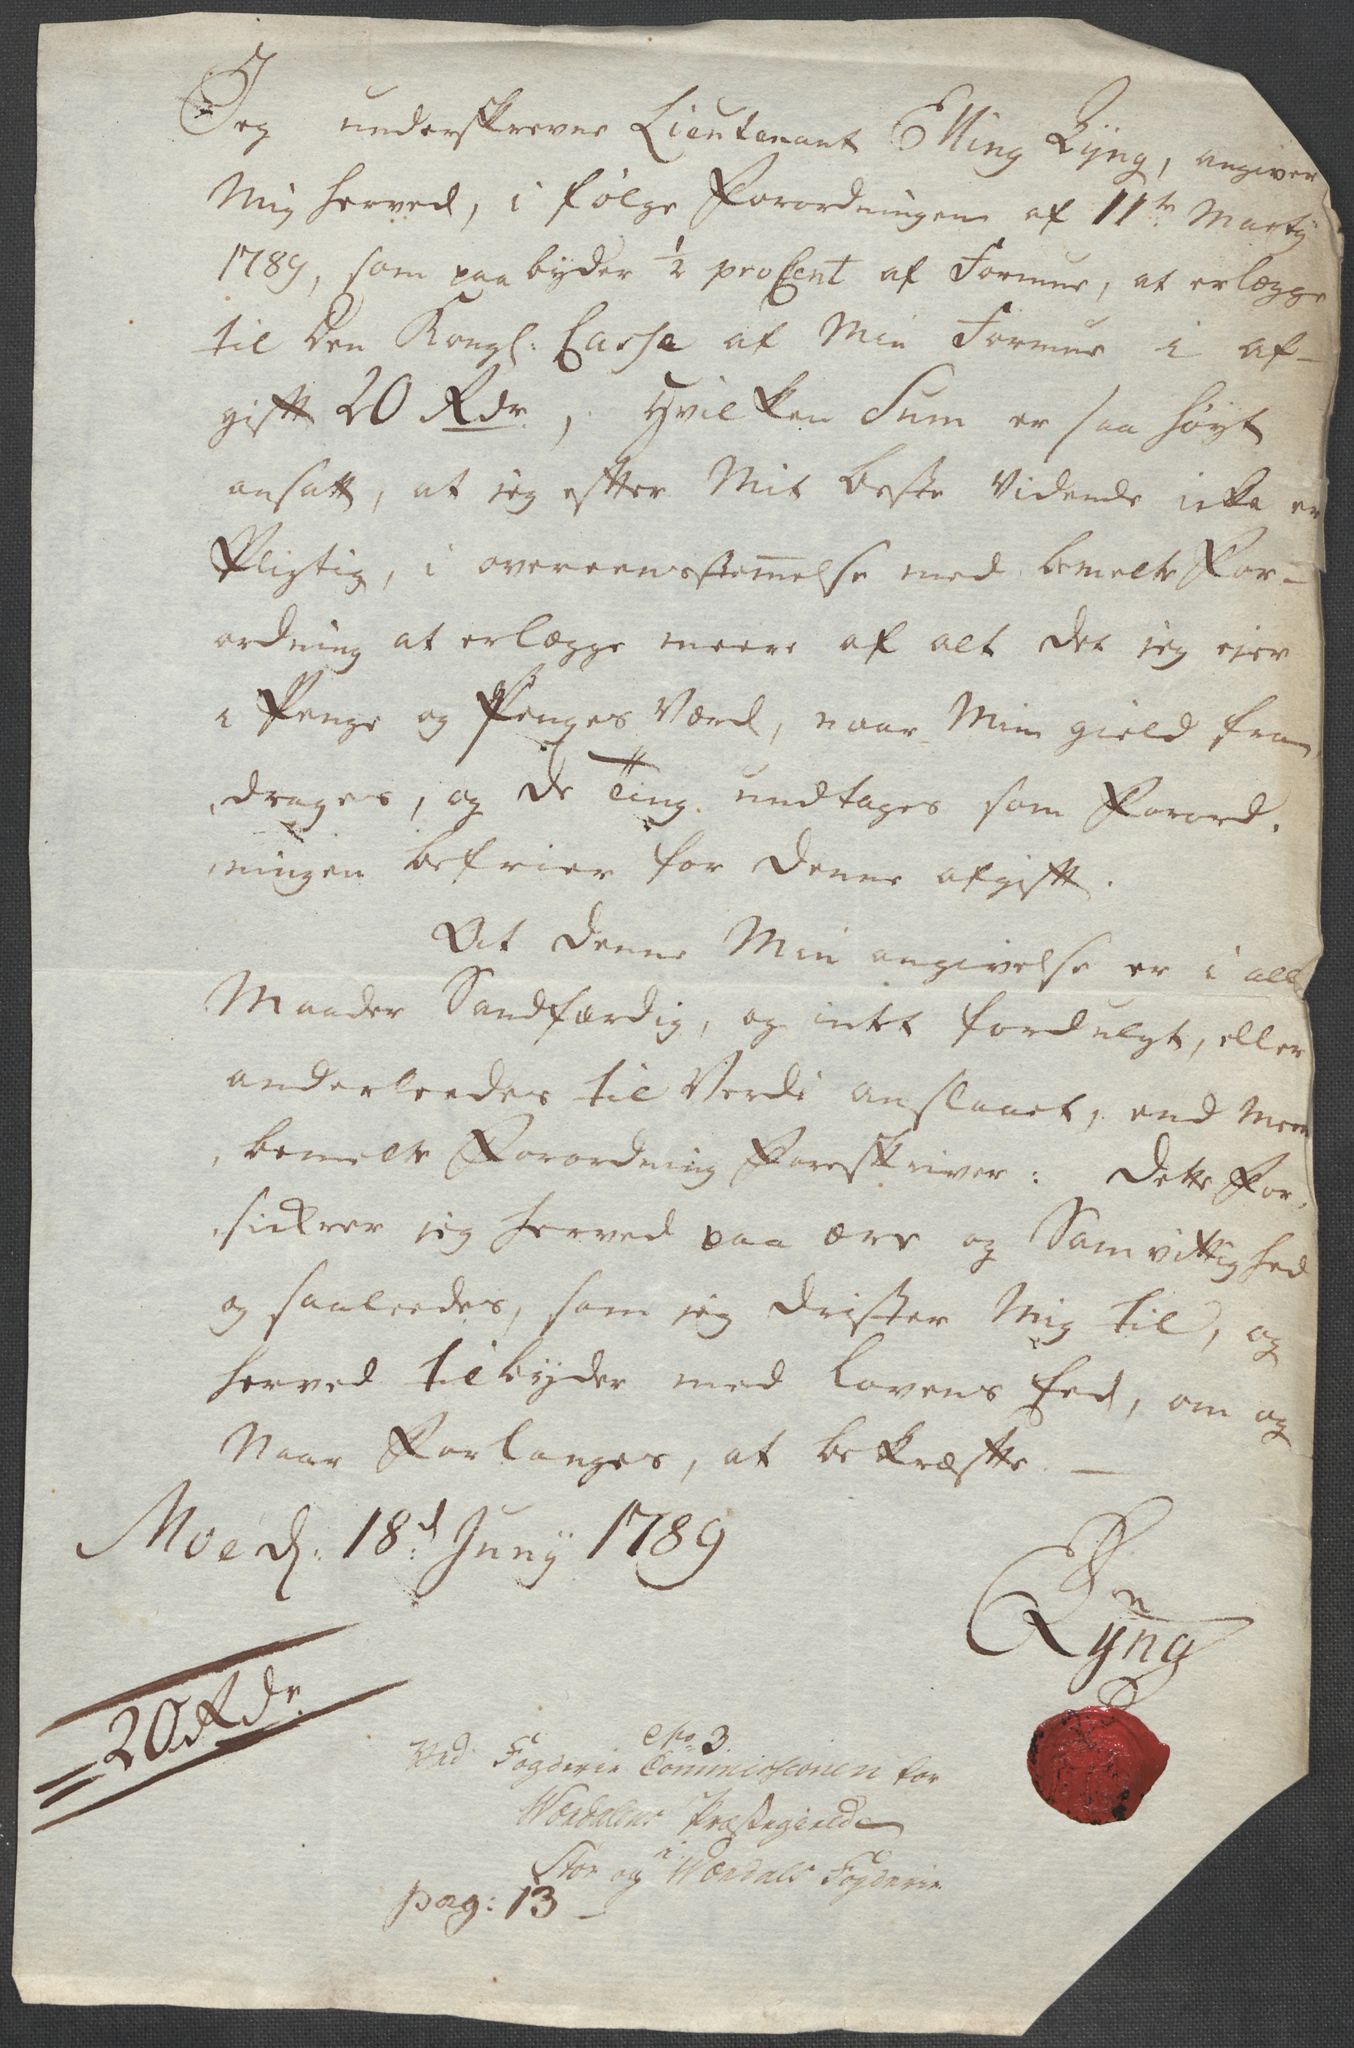 Jeg underskrevne Lieutenant Elling Lyng, angiver
Mig herved, i følge Forordningen af 11te Marty
1789, som paabyder ½ proCent af Formue, at erlægge
til den Kongl: Cassa af Min Formue i af-
gift 20 Rdr, Hvilken Sum er saa høyt
ansatt, at jeg efter Mit beste Vidende icke er
Pligtig, i overeenstem̅else med bemelte For-
ordning at erlægge meere af alt det jeg ejer
i Penge og Penges Værd, naar Min gield fra
drages, og de Ting undtages som Forord-
ningen befrier for denne afgift.
At denne Min angivelse er i alle
Maader Sandfærdig, og intet fordulgt, eller
anderleedes til Verdi anslaaet, end Meer
bemelte Forordning Foreskriver: dette For-
sickrer jeg herved paa ære og Samvittighed
og saaleedes, som jeg drister Mig til, og
herved tilbyder med Lovens Eed, om og
Naar Forlanges, at bekræfte. —
Moe d: 18d Juny 1789
E Lyng
20 Rdr
No 3
Ved Fogderie Commissionen for
Værdalens Præstegield
i
Stør og Værdals Fogderie
pag: 13 —